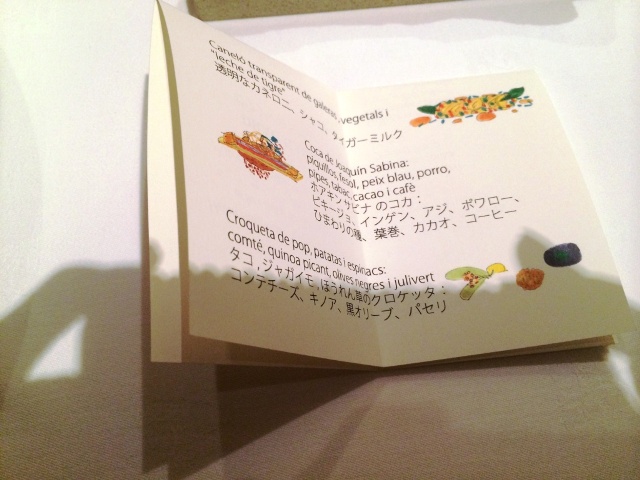 Caneló transparent de galeres, vegetals i
"leche de tigre"
透明なカネロニ、シャコ、タイガーミルク
Coca de Joaquín Sabina:
piquillos, fesol, peix blau, porro,
pipes, tabac, cacao i cafè
ホアキンサビナ のコカ：
ピキージョ、インゲン、アジ、ポワロー、
ひまわりの種、葉巻、カカオ、コーヒー
Croqueta de pop, patatas i espinacs:
comté, quinoa picant, olives negres i julivert
タコ , ジャガイモ , ほうれん草のクロケッタ：
コンテチーズ、キノア、黒オリーブ、パセリ